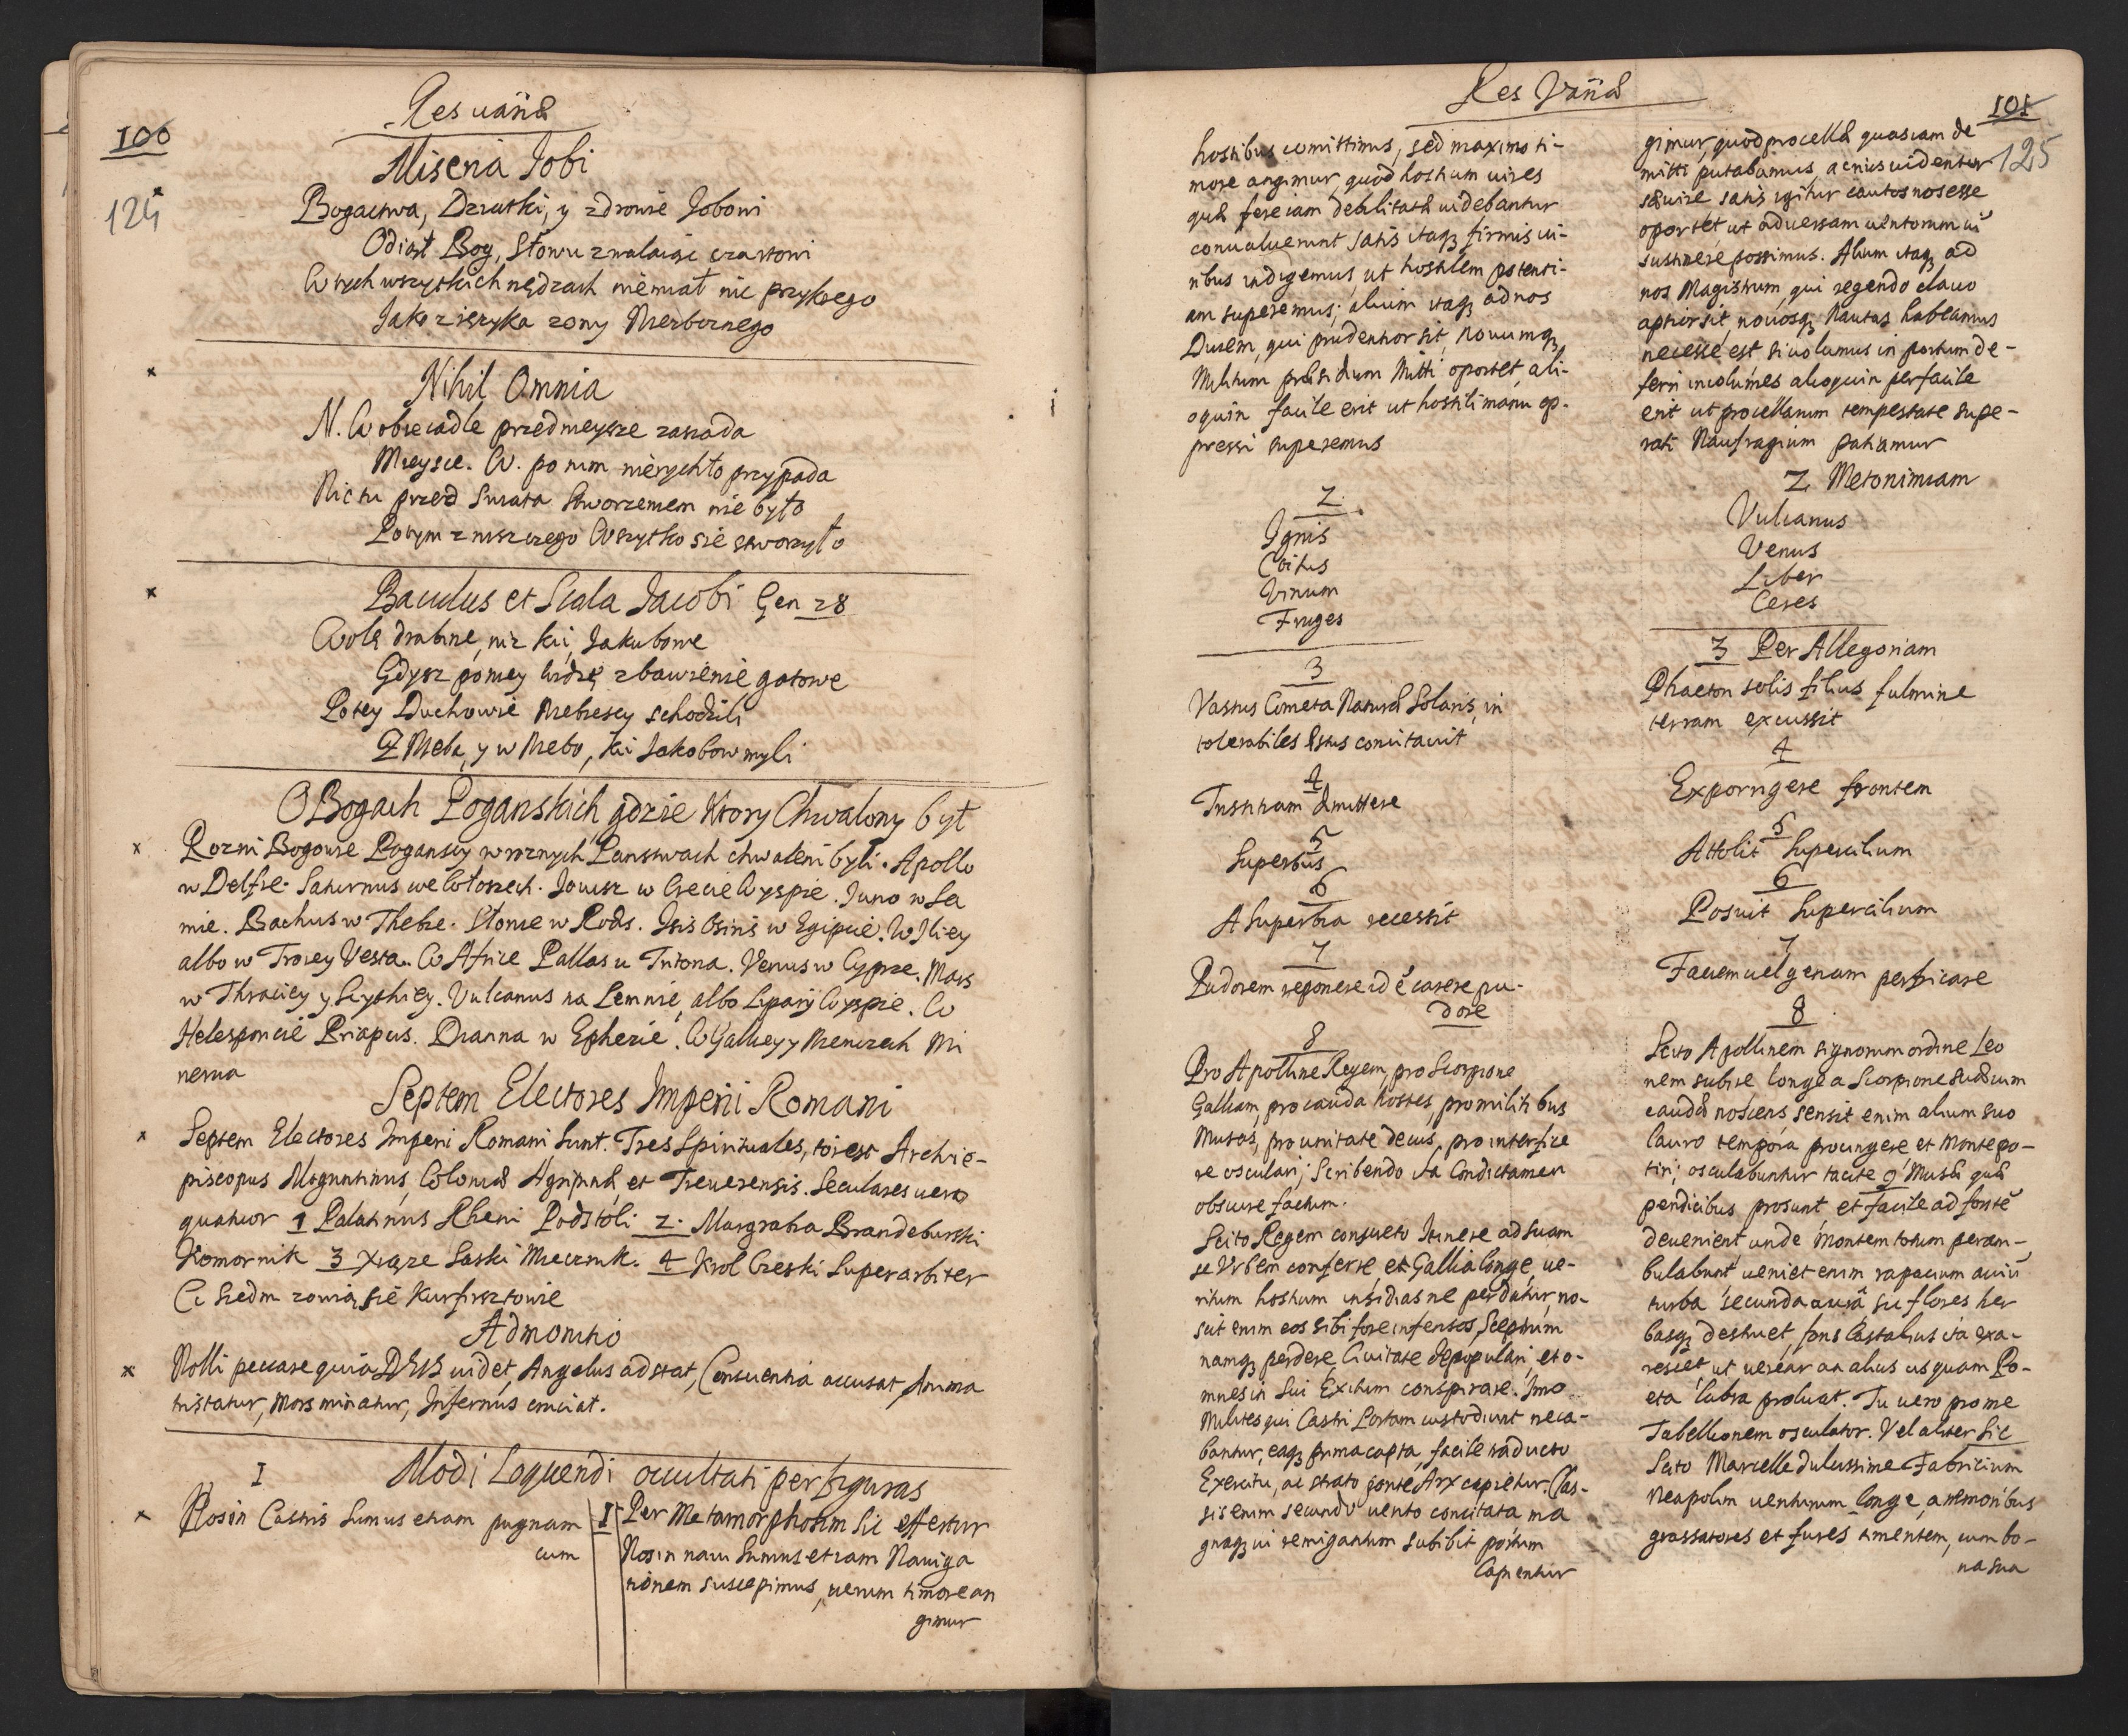 Res uariæ
100
124
Miseria Jobi
Bogactwa, Dziatki, y zdrowie Jobowi
Odiął Bog, słowu znalaiąc czartowi
W tych wszytkich nędzach niemiał nic przykrego
Jako ięzyka zony Mezbożnego
Nihil Omnia
N. W obiecadle przedmeysze zasiada
Mieysce. W. po nim nierychło przypada
Nic tu przed Swiata Stworzeniem nie było
Potym z niszczego Wszytko sie stworzyło
Baculus et Scala Jacobi Gen 28
Wolę drabinę, niz kii, Jakubowe
Gdysz poniey widzę zbawienie gotowe
Potey Duchowie Niebiescy schodzili
Z Nieba, y w Niebo, kii Jakobow myli
O Bogach Poganskich, gdzie ktory Chwalony był
Rozni Bogowie Poganscy w roznych Panstwach chwaleni byli. Apollo
w Delfie. Saturnus we Włoszech. Jowisz w Crecie Wyspie. Juno w Sa
mie. Bachus w Thebie. Słonce w Rods. Isis Osiris w Egipcie. W Iliey
albo w Troiey Vesta. W Africe Pallas u Tritona. Venus w Cyprze. Mars
w Thraciey y Scythiey. Vulcanus na Lemnie, albo Lipary Wyspie. W
Helesponcie Priapus. Dianna w Ephezie. W Galliey y Niemczech Mi
nerua
Septem Electores Imperii Romani
Septem Electores Imperii Romani Sunt. Tres Spirituales, to iest Archie-
piscopus Moguntinus, Coloniæ Agripinæ, et Treuerensis. Seculares uero
quatuor 1 Palatinus Rheni Podstoli 2. Margrabia Brandeburski
Komornik 3 Xiąze Saski Miecznik. 4 Krol Czeski Superarbiter
Ci Siedm zowią sie Kurfirsztowie
Admonitio
Nolli peccare quia DEUS uidet, Angelus adstat, Consuentia accusat, Anima
tristatur, Mors minatur, Infernus cruciat.
Modi Loquendi occultati per figuras
I
Nos in Castris Sumus etiam pugnam
cum
I Per Metamorphosim Sic effertur
Nos in naui Sumus etiam Nauiga
tionem suscepimus, uerum timore an
gimur
Res Variæ
101
125
hostibus comittimus, sed maximo ti-
more angimur, quod hostium uires
quæ fere iam debilitatæ uidebantur
conualuerunt satis itaq3 firmis ui-
ribus indigemus, ut hostilem potenti-
am superemus; alium itaq3 ad nos
Ducem, qui prudentior sit, nouumq3
Militum præsidium Mitti oportet, ali-
oquin facile erit ut hostili manu op-
pressi superemus
2
Ignis
Coitus
Vinum
Fruges
3
Vastus Cometa Naturæ Solaris, in
tolerabiles Æstus concitauit
4
Tristitiam Amittere
5
Superbus
6
A Superbia recessit
7
Pudorem reponere id ē carere pu-
dore
8
Pro Apolline Regem, pro Scorpione
Galliam, pro cauda hostes, pro militibus
Musas, pro unitate decus, pro interfice
re osculari; Scribendo ita Condictamen
obscure factum.
Scito Regem consueto Itinere ad suam
se Urbem conferre, et Gallia longe, ue-
ritum hostium insidias ne perdatur, no-
scit enim eos sibi fore infensos, Sceptrum
namq3 perdere, Ciuitate depopulari, et o-
mnes in Sui Exitium conspirare. Imo
Milites qui Castri Portam custodiunt neca-
bantur, eaq3 prima capta, facile traducto
Exercitu, ac strato ponte Arx capietur. Clas-
sis enim secundo uento concitata ma
gnaq3 ui remigantium subibit portum
Capientur
gimur, quod procellæ quas iam de
mitti putabamus, acrius uidentur
sæuire satis igitur cautos nos esse
oportet, ut aduersam uentorum uī
sustinere possimus. Alium itaq3 ad
nos Magistrum, qui regendo clauo
aptior sit, nouosq3 Nautas habeamus
necesse est, si uolumus in portum de-
ferri incolumes alioquin perfacile
erit ut procellarum tempestate supe-
rati Naufragium patiamur
2 Metonimiam
Vulcanus
Venus
Liber
Ceres
3 Per Allegoriam
Phaeton solis filius fulmine
terram excussit
4
Exporrigere frontem
5
Attolit Supercilium
6
Posuit Supercilium
7
Faciem uel genam perfricare
8
Scito Apollinem signorum ordine Leo
nem subire longe a Scorpione
caudæ noscens sensit enim alium suo
Lauro tempora procingere et Monte po-
tiri; osculabuntur tacite Musæ quæ
pendicibus prosunt et facile ad fontē
deuenient unde Montem totum peram-
bulabunt ueniet enim rapacium auiū
turba secunda aurâ sic flores her
basq3 destruet, fons Castalius ita exa-
resiet, ut uerear an alius usquam Po-
eta labra proluat. Tu uero pro me
Tabellionem osculator. Vel aliter Sic
Scito Marcelle dulcissime Fabricium
Neapolim uenturum longe, a nemoribus
grassatores et fures timentem, cum bo-
na sua